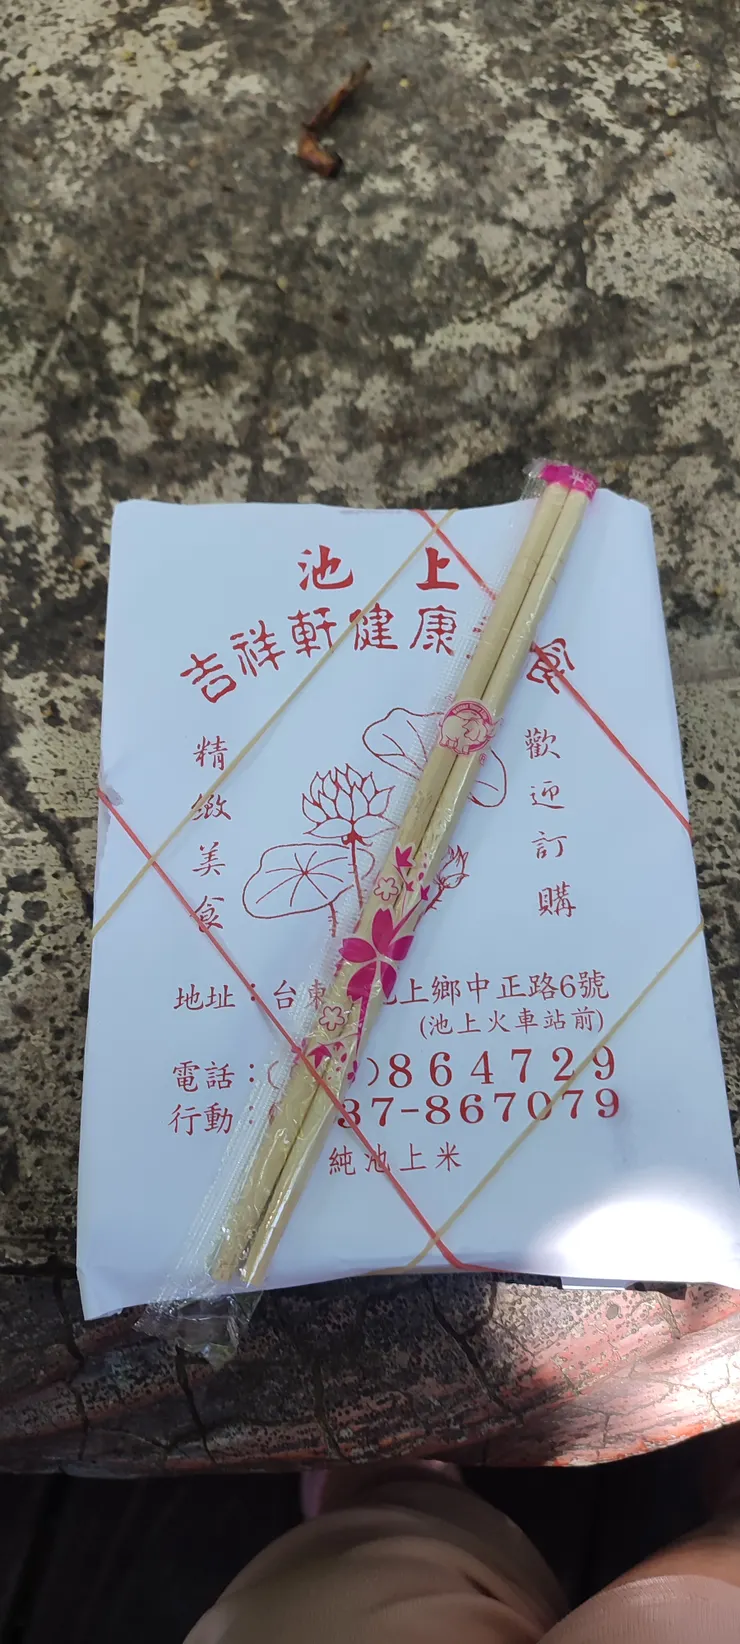 池上
吉祥軒健康食
精緻美食
歡迎訂購
地址：台東上鄉中正路6號
(池上火車站前)
電話：( )864729
行動：37-867079
純池上米